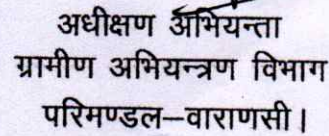 अधीक्षण अभियन्ता
ग्रामीण अभियन्त्रण विभाग
परिमण्डल–वाराणसी।